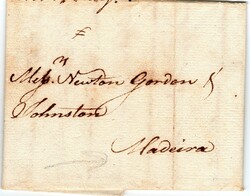 Messrs Newton Gordon &
Johnston
Madeira